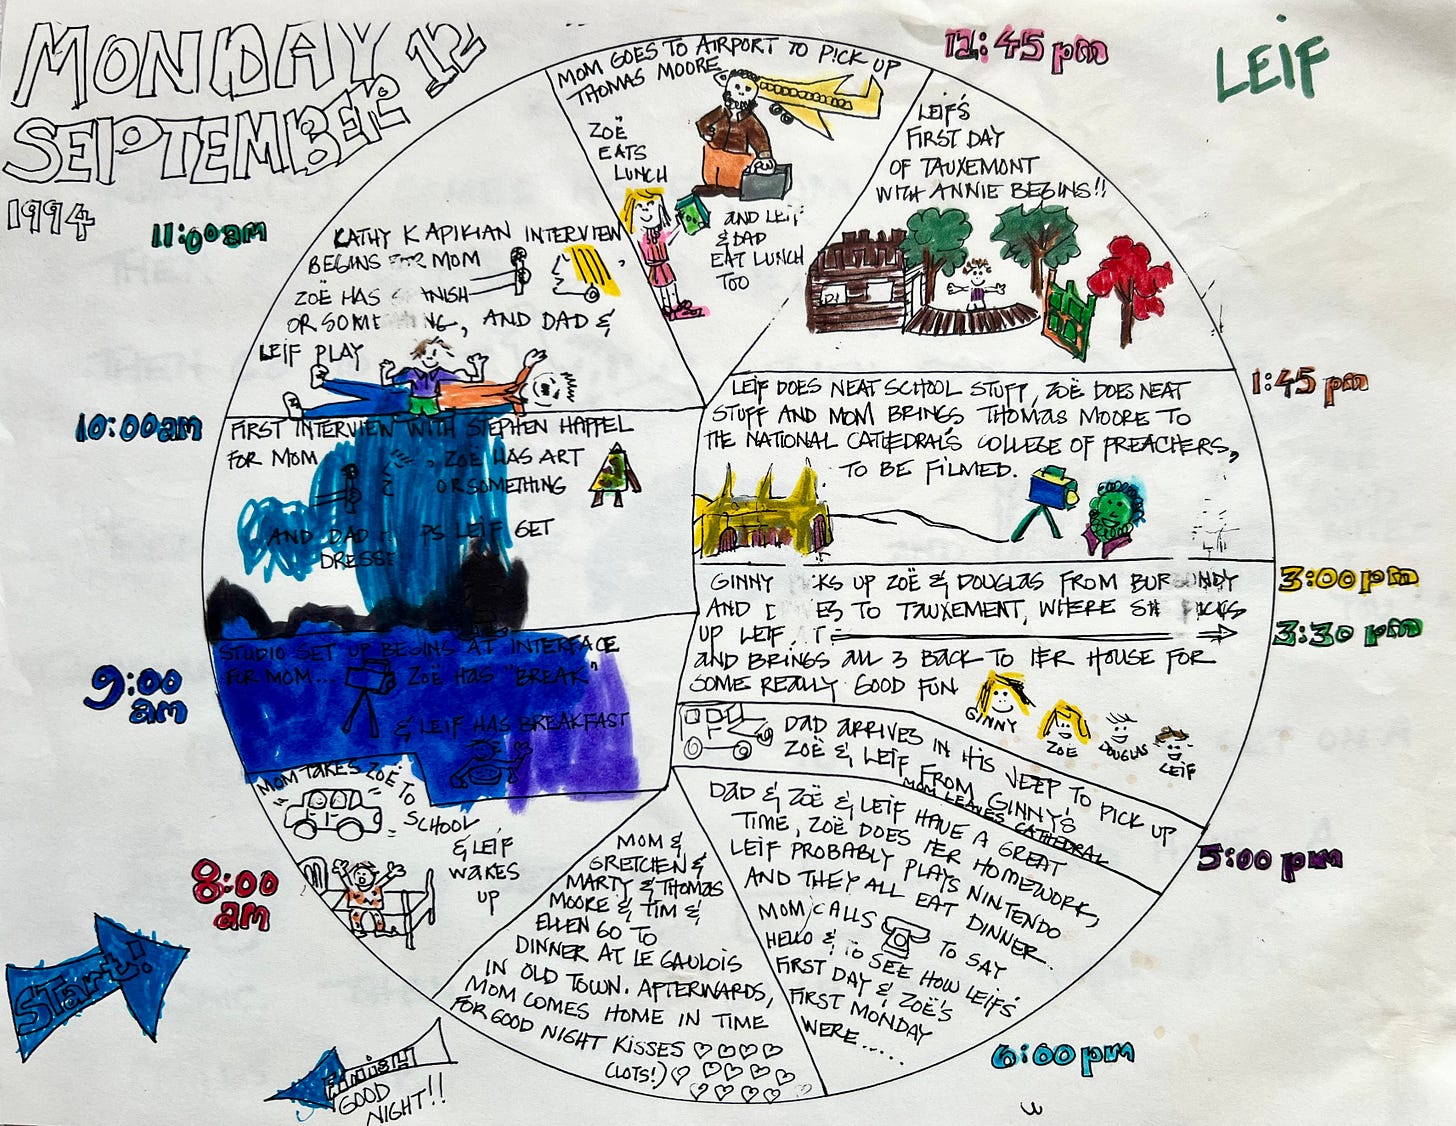 MONDAY
SEPTEMBER 12
1994
LEIF
START!
8:00
am
MOM TAKES ZOË TO
SCHOOL
& LEIF
WAKES
UP
9:00
am
STUDIO SET UP BEGINS AT INTERFACE
FOR MOM... ZOË HAS "BREAK"
& LEIF HAS BREAKFAST
10:00am
FIRST INTERVIEW WITH STEPHEN HAPPEL
FOR MOM, ZOË HAS ART
OR SOMETHING
AND DAD PS LEIF GET
DRESSE
11:00am
KATHY KAPIKIAN INTERVIEW
BEGINS FOR MOM
ZOË HAS NISH
OR SOME NG, AND DAD &
LEIF PLAY
MOM GOES TO AIRPORT TO PICK UP
THOMAS MOORE
ZOË
EATS
LUNCH
AND LEIF
& DAD
EAT LUNCH
TOO
12:45 pm
LEIF'S
FIRST DAY
OF TAUXEMONT
WITH ANNIE BEGINS!!
1:45 pm
LEIF DOES NEAT SCHOOL STUFF, ZOË DOES NEAT
STUFF AND MOM BRINGS THOMAS MOORE TO
THE NATIONAL CATHEDRAL'S COLLEGE OF PREACHERS,
TO BE FILMED.
3:00 pm
GINNY KS UP ZOË & DOUGLAS FROM BURGUNDY
AND ES TO TAUXEMENT, WHERE SH ICKS
3:30 pm
UP LEIF
AND BRINGS ALL 3 BACK TO HER HOUSE FOR
SOME REALLY GOOD FUN
GINNY
ZOË
DOUGLAS
LEIF
DAD ARRIVES IN HIS JEEP TO PICK UP
ZOË & LEIF FROM GINNY'S
MOM LEAVES CATHEDRAL
5:00 pm
DAD & ZOË & LEIF HAVE A GREAT
TIME, ZOË DOES HER HOMEWORK,
LEIF PROBABLY PLAYS NINTENDO
AND THEY ALL EAT DINNER..
MOM CALLS TO SAY
HELLO & TO SEE HOW LEIF'S
FIRST DAY & ZOË'S
FIRST MONDAY
WERE.....
6:00 pm
MOM &
GRETCHEN &
MARTY & THOMAS
MOORE & TIM &
ELLEN GO TO
DINNER AT LE GAULOIS
IN OLD TOWN. AFTERWARDS,
MOM COMES HOME IN TIME
FOR GOOD NIGHT KISSES
(LOTS!)
FINISH
GOOD
NIGHT!!